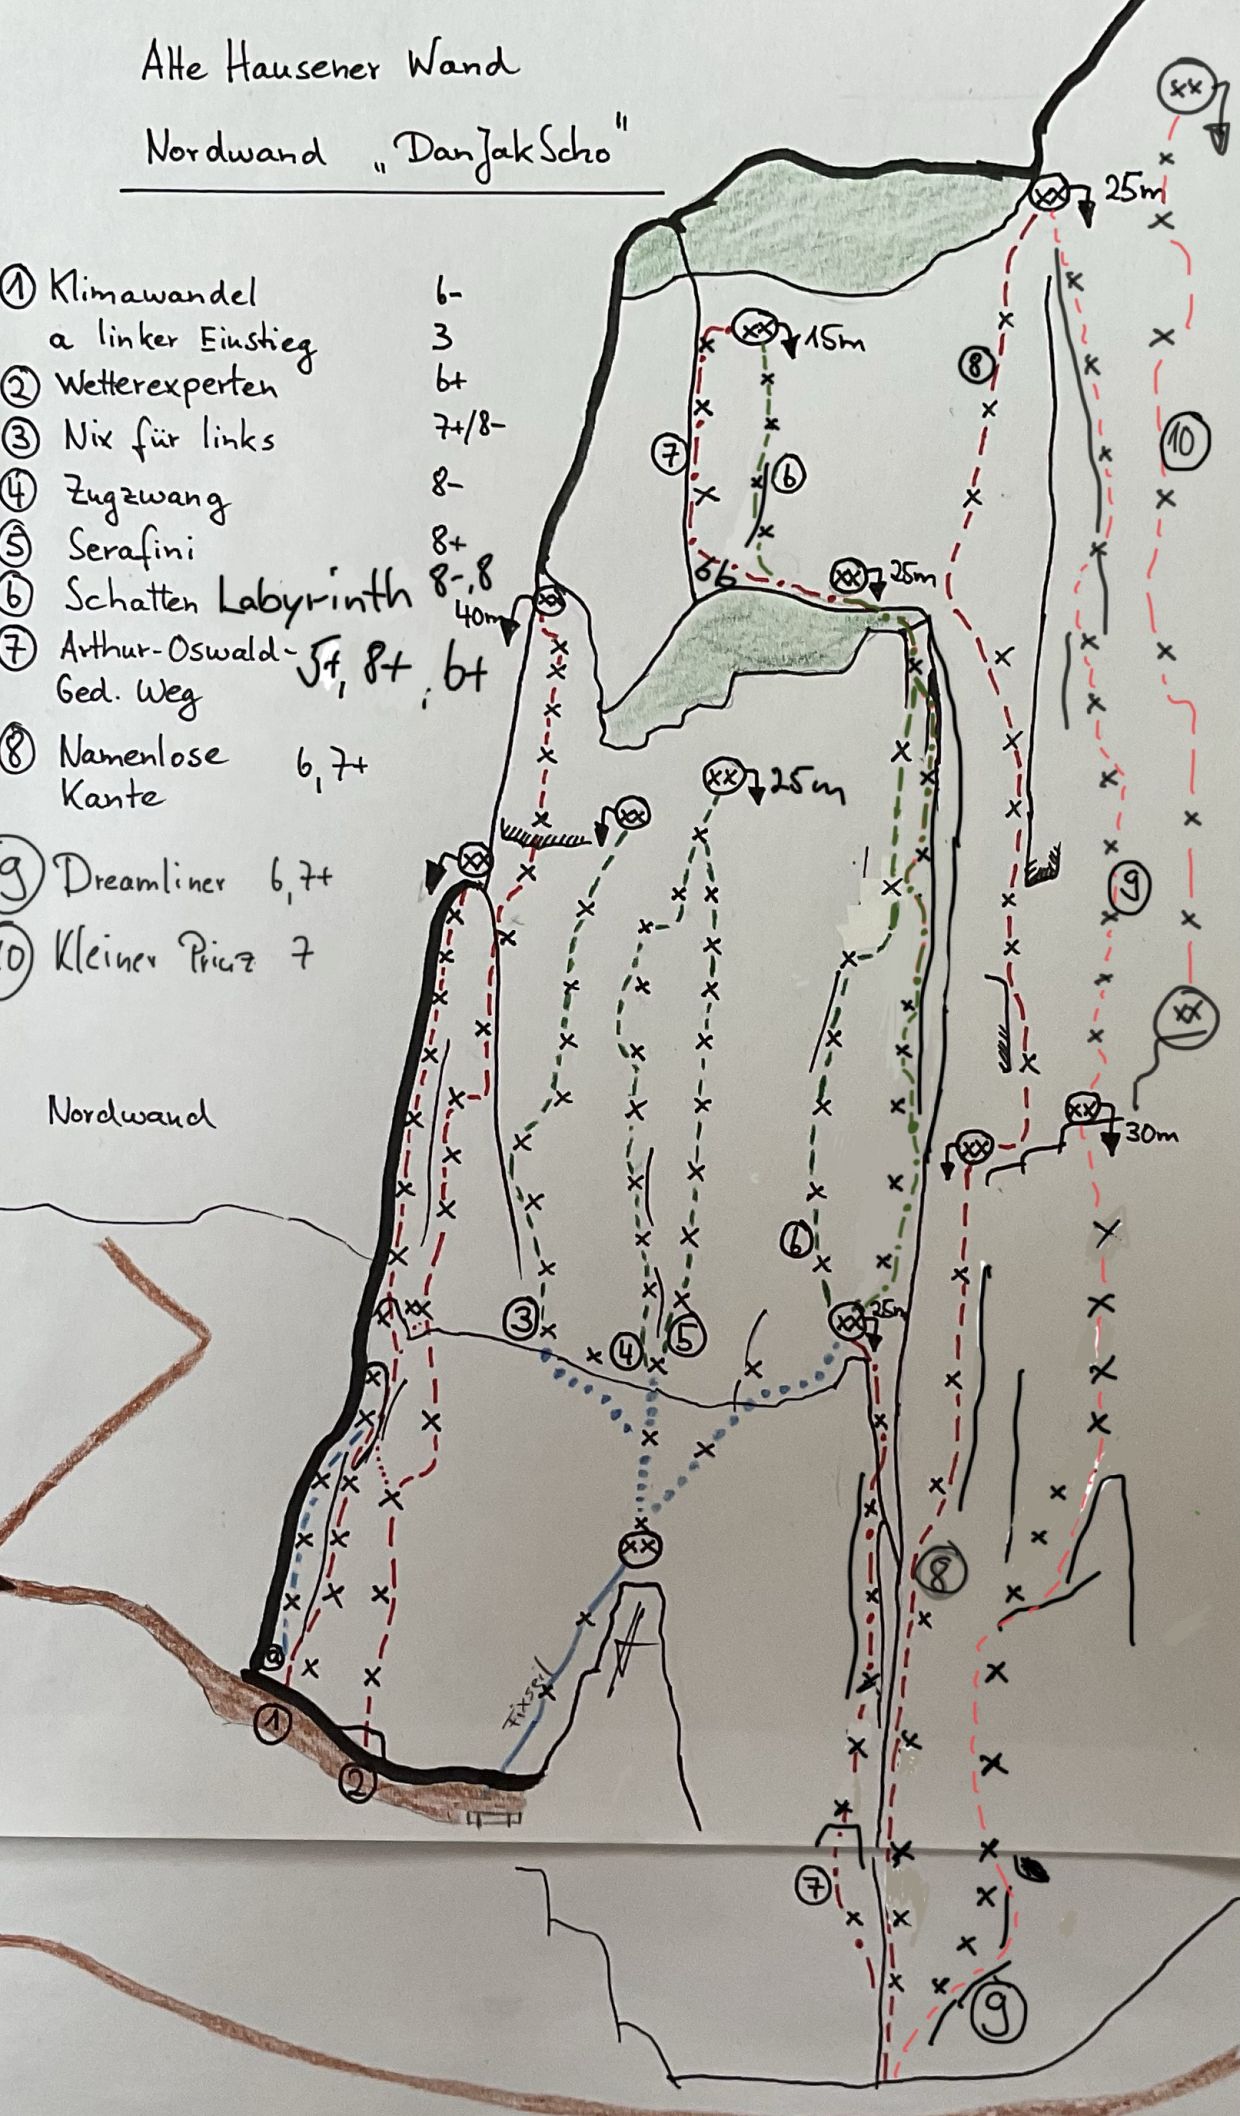 Alte Hausener Wand
Nordwand „DanJakScho"
① Klimawandel 6-
a linker Einstieg 3
② Wetterexperten 6+
③ Nix für links 7+/8-
④ Zugzwang 8-
⑤ Serafini 8+
⑥ Schatten Labyrinth 8-,8
⑦ Arthur-Oswald- 5+, 8+, 6+
Ged. Weg
⑧ Namenlose 6,7+
Kante
⑨ Dreamliner 6,7+
⑩ Kleiner Prinz 7
Nordwand
xx
xx 25m
xx 15m
8
7
6
10
xx 25m
40m xx
xx 25m
xx
xx
9
xx
xx 30m
xx
6
3
4
5
xx 25m
xx
xx
8
Fixseil
a
1
2
7
9